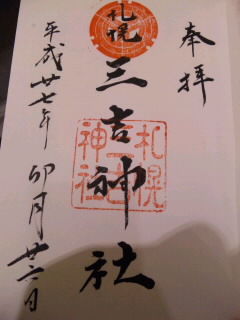 奉拝
札幌
三吉神社
札幌
三吉
神社
平成廿七年 卯月廿六日